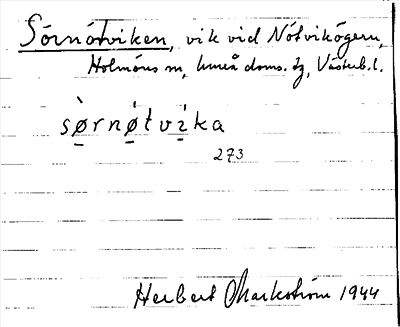 Sörnötviken, vik vid Nötvikögern,
Holmöns sn, Umeå doms. tg, Västerb. l.
sø̀rnǿtvì̱ka
273
Herbert Markström 1944